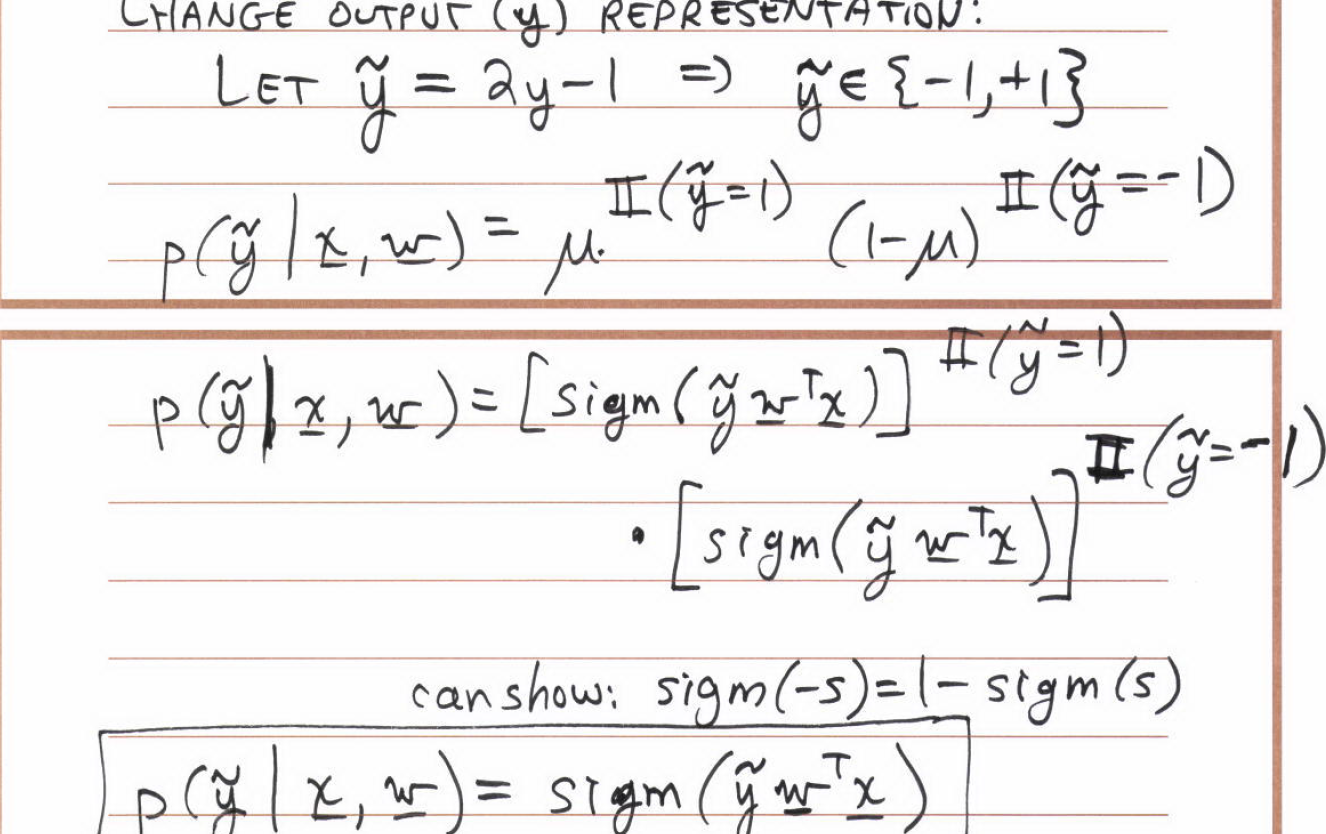 CHANGE OUTPUT (y) REPRESENTATION:
LET ỹ = 2y-1 => ỹ ∈ {-1,+1}
p(ỹ | x, w) = μ^𝕀(ỹ=1) (1-μ)^𝕀(ỹ=-1)
p(ỹ | x, w) = [sigm(ỹ wᵀx)]^𝕀(ỹ=1)
· [sigm(ỹ wᵀx)]^𝕀(ỹ=-1)
can show: sigm(-s)=1- sigm(s)
p(ỹ | x, w) = sigm(ỹ wᵀx)